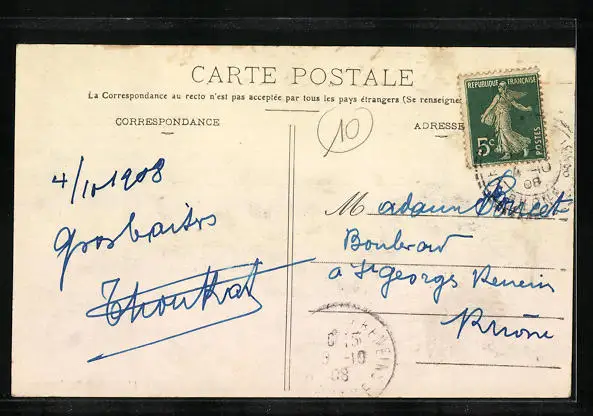 CARTE POSTALE
La Correspondance au recto n'est pas acceptée par tous les pays étrangers (Se renseigne
CORRESPONDANCE
ADRESSE
10
REPUBLIQUE FRANÇAISE
5c
POSTES
4/10 1908
Madame
Boulevard
à St georges Reneins
Rhône
-10
08